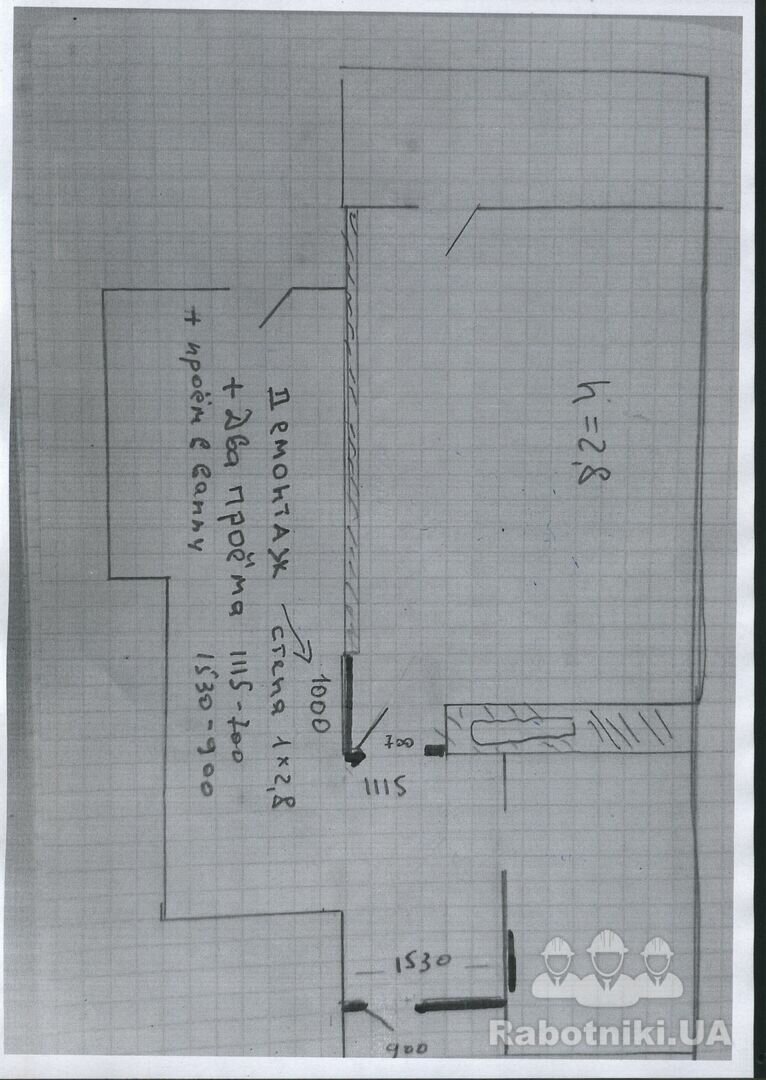 h=2,8
Демонтаж стена 1×2,8
+ Два проёма 1115-700
1530-900
+ проём в ванну
1000
700
1115
1530
900
Rabotniki.UA